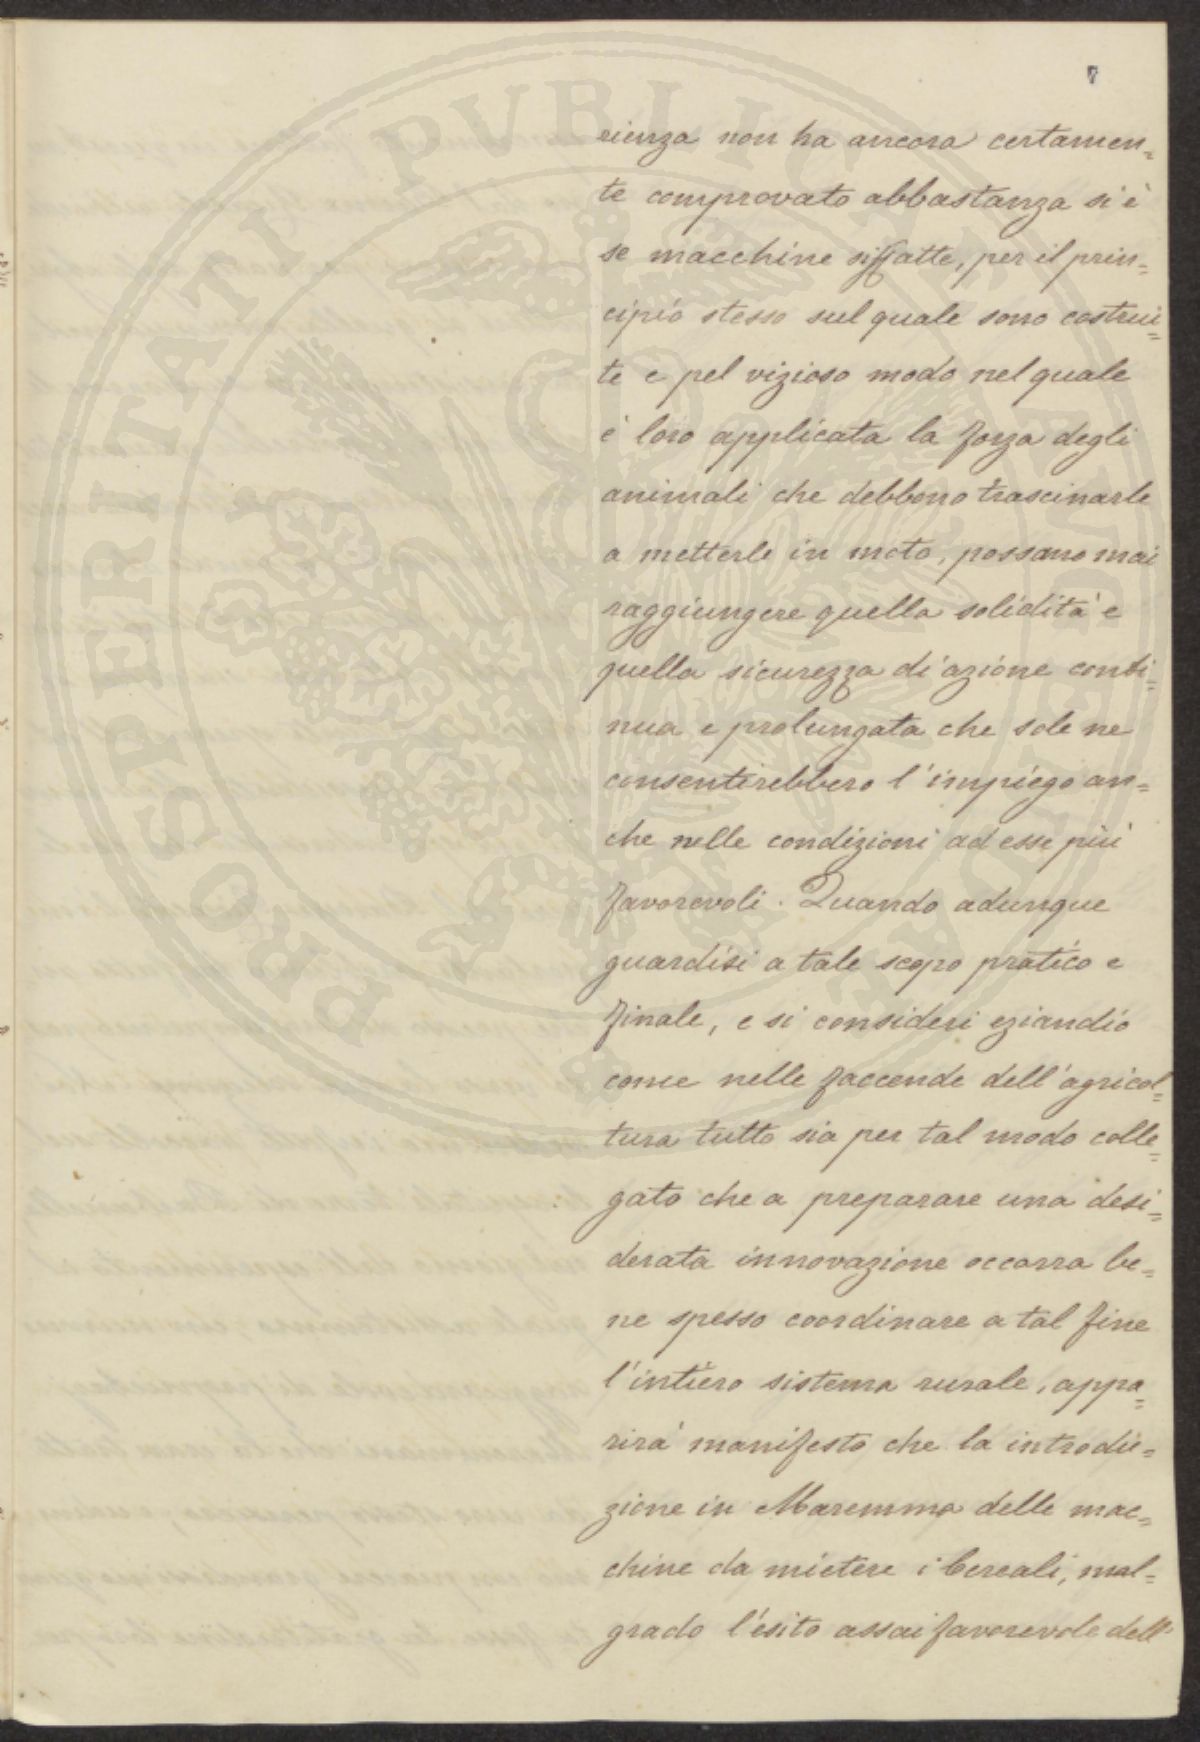 7
rienza non ha ancora certamen=
te comprovato abbastanza si è
se macchine siffatte, per il prin=
cipio stesso sul quale sono costrui=
te e pel vizioso modo nel quale
è loro applicata la forza degli
animali che debbono trascinarle
a metterle in moto, possano mai
raggiungere quella solidità e
quella sicurezza di azione conti=
nua e prolungata che sole ne
consentirebbero l'impiego an=
che nelle condizioni ad esse più
favorevoli. Quando adunque
guardisi a tale scopo pratico e
finale, e si consideri eziandio
come nelle faccende dell'agricol=
tura tutto sia per tal modo colle=
gato che a preparare una desi=
derata innovazione occorra be=
ne spesso coordinare a tal fine
l'intiero sistema rurale, appa=
rirà manifesto che la introdu=
zione in Maremma delle mac=
chine da mietere i Cereali, mal=
grado l'esito assai favorevole dell'
PROSPERITATI PVBLICAE AVGENDAE